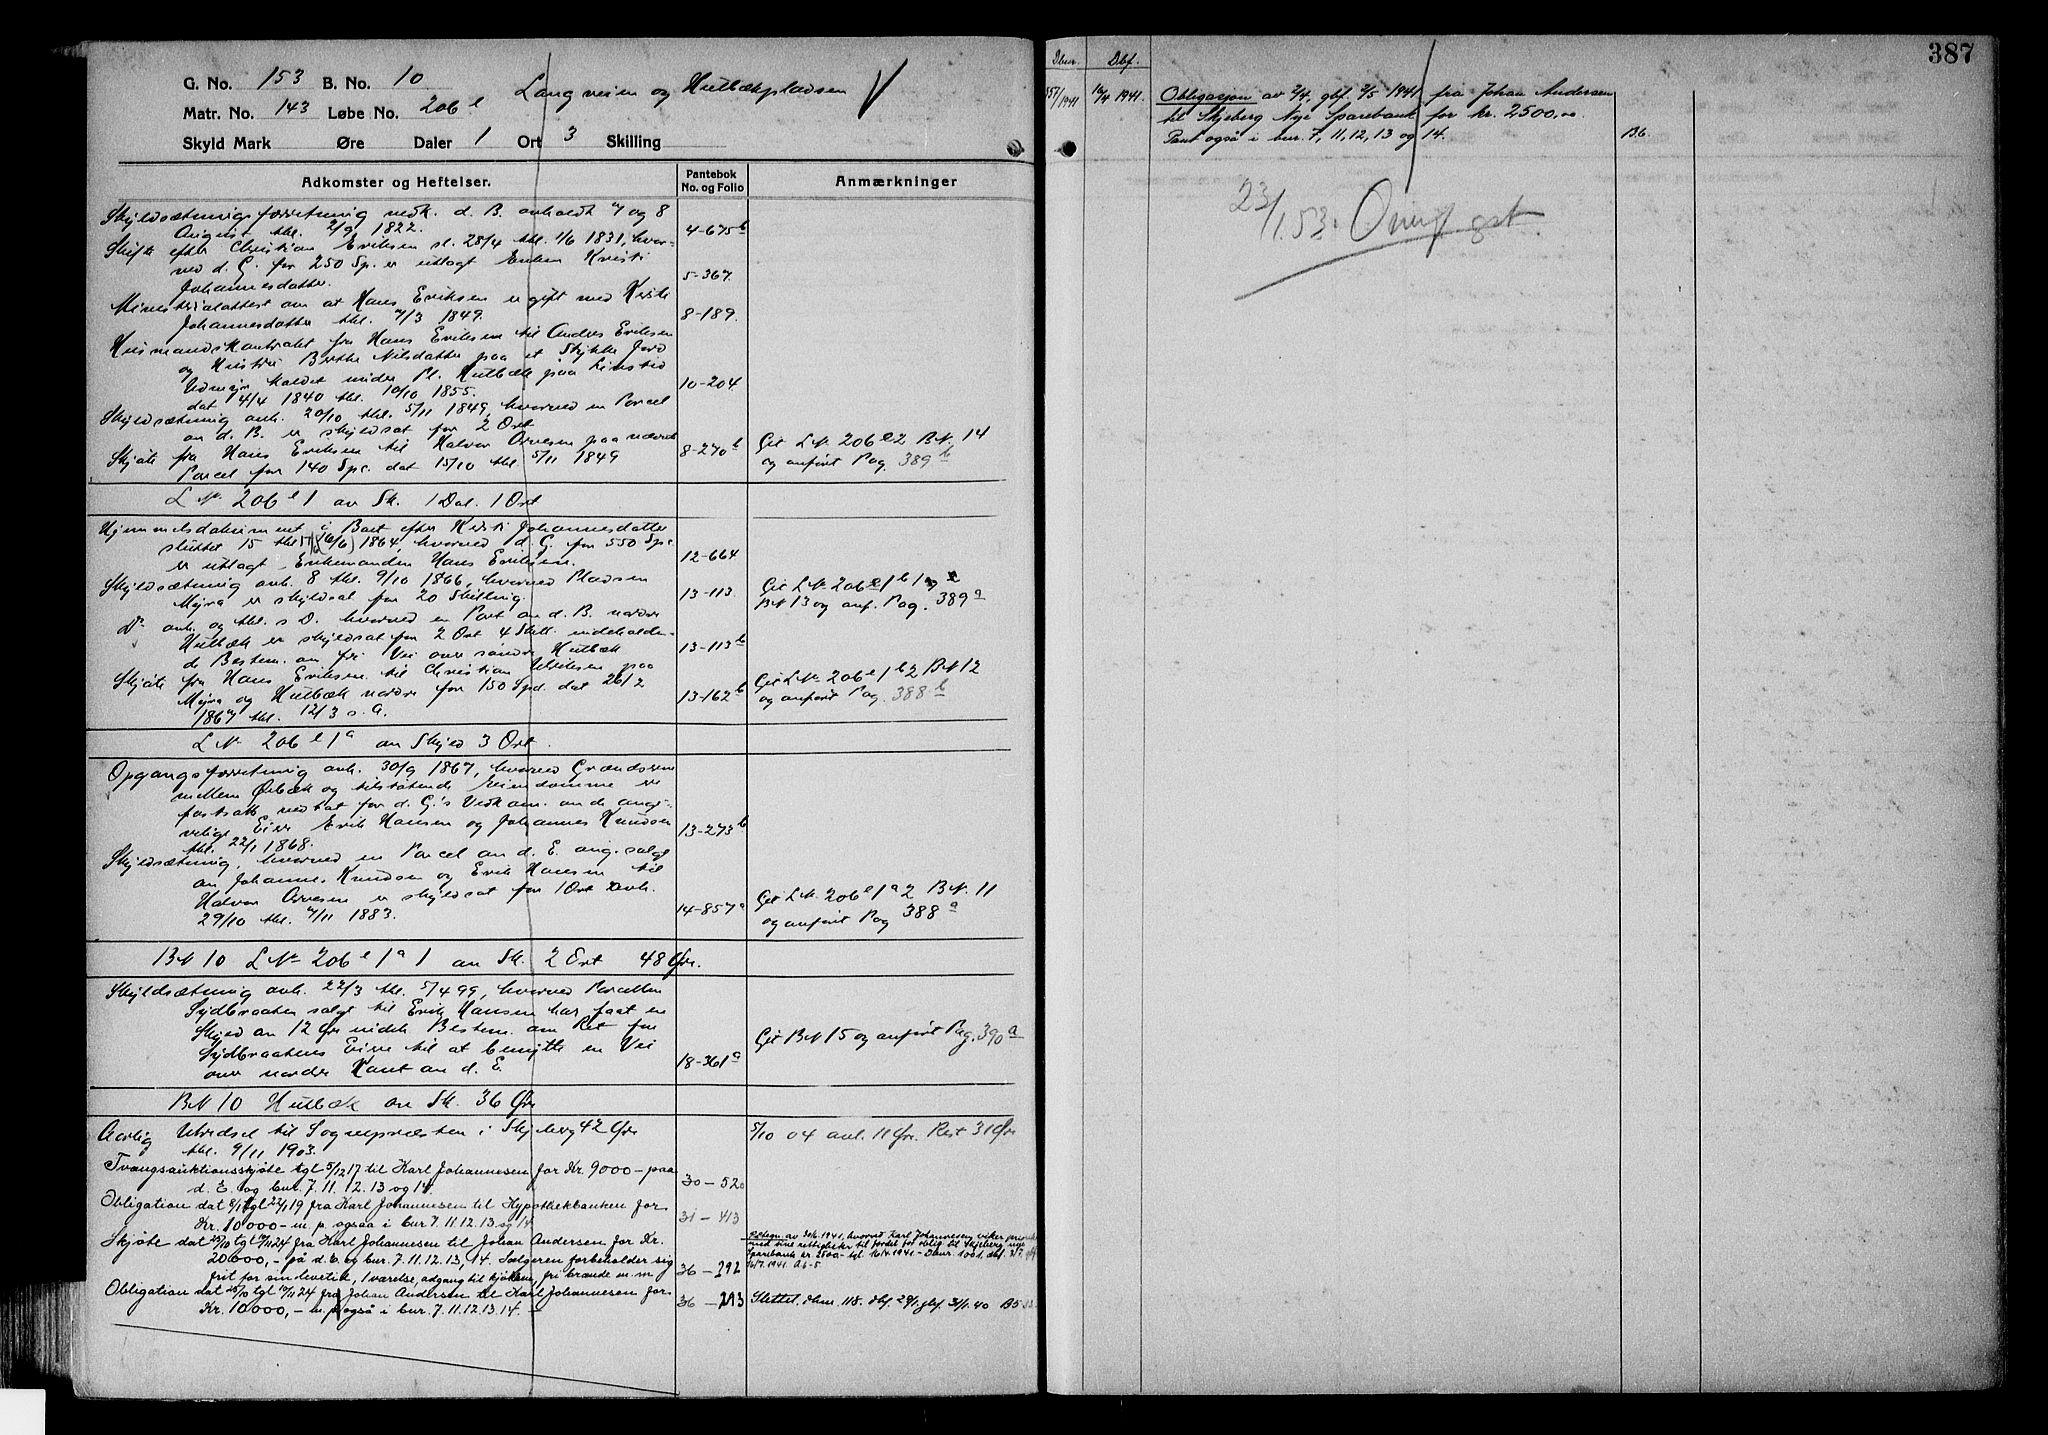 G. No. 153 B. No. 10
Langveien og Hutbækpladsen
Matr. No. 143 Løbe No. 206 e
Skyld Mark Øre Daler 1 Ort 3 Skilling
Adkomster og Heftelser.
Pantebok No. og Folio
Anmærkninger
Skyldsætningsforretning vedk. d. B. anholdt 7 og 8
August thl. 2/9 1822. 4-675 b
Skifte efter Christian Eriksen sl. 28/4 thl. 1/6 1831, hvor-
ved d. G. for 250 Sp. er utlagt Enken Kristi
Johannesdatter. 5-367.
Ministerialattest om at Hans Eriksen er gift med Kristi
Johannesdatter thl. 7/3 1849. 8-189.
Husmandskontrakt fra Hans Eriksen til Andres Eriksen
og Hustru Berthe Nilsdatter paa et Stykke Jord
kaldet under Pl. Hutbæk paa Livstid
dat 14/4 1840 thl. 10/10 1855. 10-204
Skyldsætning anh. 20/10 thl. 5/11 1849, hvorved en Parcel
av d. B. er skyldsat for 2 Ort
Skjøte fra Hans Eriksen til Halvor Arvesen paa nævnte
Parcel for 140 Spc. dat 15/10 thl. 5/11 1849 8-270 b
Git L.N. 206 e 2 B.N. 14
og anført Pag. 389 b
L.Nr. 206 e 1 av Sk. 1 Dal. 1 Ort
Hjemmelsdokument i Boet efter Kristi Johannesdatter
sluttet 15 thl (16/6) 1864, hvorved d. G. for 550 Spc
er utlagt Enkemanden Hans Eriksen. 12-664
Skyldsætning anh. 8 thl. 9/10 1866, hvorved Pladsen
Myra er skyldsat for 20 Skilling. 13-113.
Git L.Nr. 206 e 1 b 1
BN 13 og anf. Pag. 389 a
Do anh. og thl. s. D. hvorved en Part av d. B. nordre
Hutbæk er skyldsat for 2 Ort 4 Skill. indeholden-
de Bestem. om fri Vei over søndre Hutbæk 13-113 b
Skjøte fra Hans Eriksen til Christian paa
Myra og Hutbæk nordre for 150 Spd. dat 26/2
1867 thl. 12/3 s. A. 13-162 b
Git L.Nr. 206 e 1 b 2 BN 12
og anført Pag. 388 b
L.Nr. 206 e 1 a av Skyld 3 Ort.
Opgangsforretning anh. 30/9 1867, hvorved Grændserne
mellem Ørbæk og tilstøtende Eiendomme er
fastsatt, vedtat for d. G.'s Vedkom. av de angi-
velige Eiere Erik Hansen og Johannes Knudsen
thl. 22/1 1868. 13-273 b
Skyldsætning, hvorved en Parcel av d. E. ang. solgt
av Johannes Knudsen og Erik Hansen til
Halvor Arvesen er skyldsat for 1 Ort avh.
29/10 thl. 7/11 1883. 14-857 a
Git L.N. 206 e 1 a 2 B.N. 11
og anført Pag 388 a
BN 10 L.Nr. 206 e 1 a 1 av Sk. 2 Ort 48 Øre.
Skyldsætning avh. 22/3 thl. 5/4 99, hvorved Parcellen
Sydbraaten solgt til Erik Hansen har faat en
Skyld av 12 Øre indeh Bestem. om Ret for
Sydbraatens Eiere til at benytte en Vei
over nordre Kant av d. E. 18-361 a
Git BN 15 og anført Pag. 390 a
BN 10 Hutbæk av Sk. 36 Øre
Aarlig Utredsel til Sognepræsten i Skjeberg 42 Øre
thl. 9/11 1903.
5/10 04 avl. 11 Øre. Rest 31 Øre
Tvangsauktionsskjøte tgl 5/12 17 til Karl Johannesen for Kr. 9000 – paa
d. E. og bnr. 7. 11. 12. 13 og 14. 30 – 520
Obligation dat 8/1 tgl 22/1 19 fra Karl Johannesen til Hypothekbanken for
Kr. 10 000 – m. p. ogsaa i bnr 7. 11. 12. 13. og 14 31 – 413
Skjøte dat 25/10 tgl 10/11 24 fra Karl Johannesen til Johan Andersen for Kr.
20 000, – på d. E. og bnr. 7. 11. 12. 13, 14. Selgeren forbeholder sig
frit for sin levetid, 1 værelse, adgang til kjøkken, fri brænde m. m 36 – 292
av 30/6 1941, hvorved Karl Johannesen viker
med sine rettigheter til fordel for oblig. til Skjeberg nye
Sparebank kr 2500.- tgl. 16/4 1941 – Dbnr. 1001, dbf.
16/7. 1941. A6-5
Obligation dat 25/10 tgl 10/11 24 fra Johan Andersen til Karl Johannesen for
Kr. 10 000, – m. p. også i bnr. 7. 11. 12. 13. 14. – 36 – 293
Slettet. dbnr. 118. dbf. 29/1, gbf. 31/1. 40 B5
387
Dbnr. Dbf.
557/1941 16/4 1941.
Obligasjon av 2/4, gbf. 2/5 1941 fra Johan Andersen
til Skjeberg Nye Sparebank for kr. 2500,00
Pant også i bnr. 7, 11, 12, 13 og 14. B6
23/1.53.